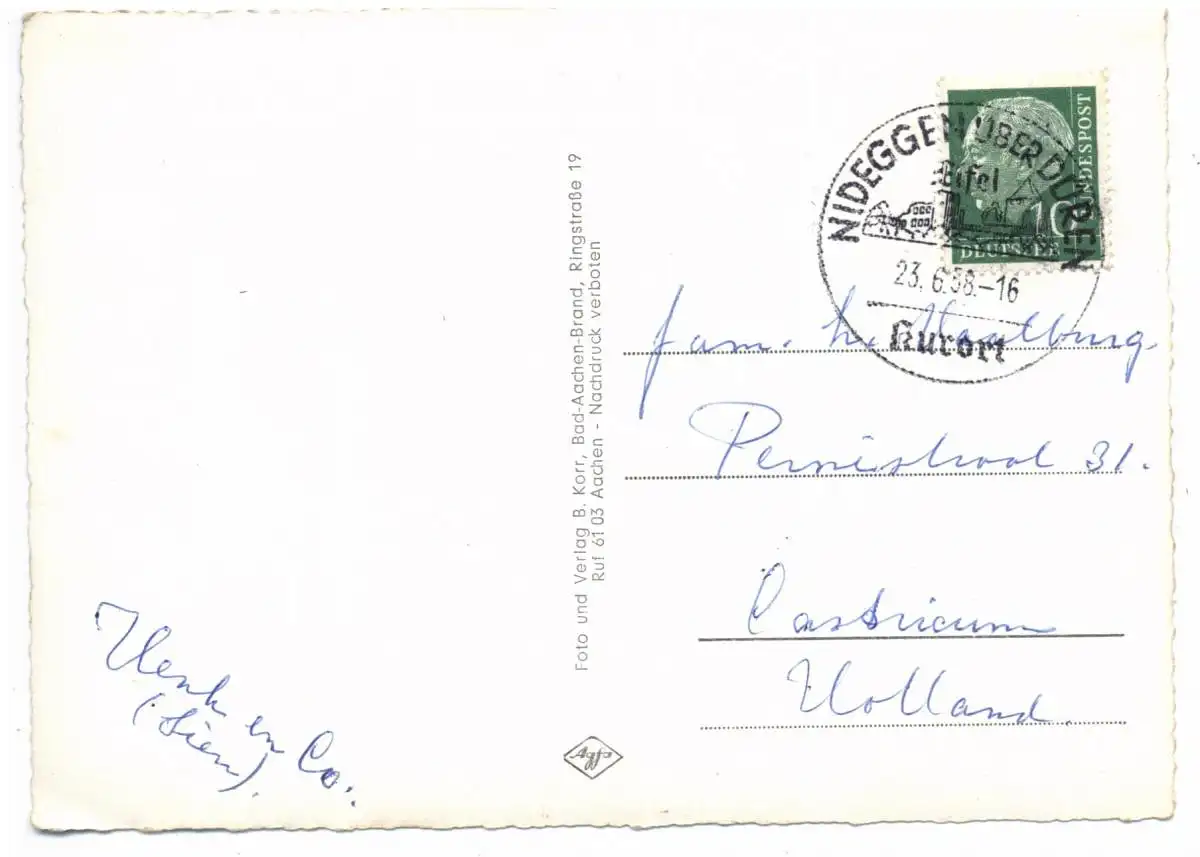 Henk en Co.
(Sien).
Foto und Verlag B. Korr, Bad-Aachen-Brand, Ringstraße 19
Ruf 61 03 Aachen - Nachdruck verboten
Agfa
NIDEGGEN ÜBER DÜREN
Eifel
23.6.58.-16
Kurort
10
DEUTSCHE
BUNDESPOST
fam. h. Maalburg
31.
Castricum
Holland.